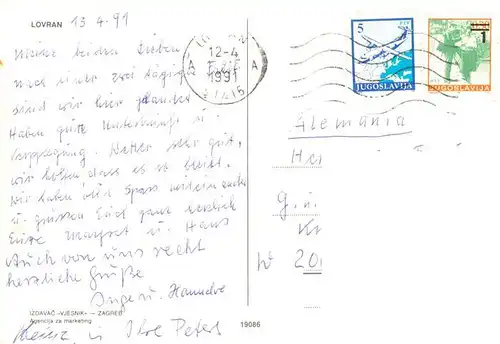 LOVRAN 13.4.91
Meine beiden Lieben
nach einer zwei tägigen
sind wir hier gelandet
Haben gute Unterkunft u.
Verpflegung. Wetter sehr gut,
wir hoffen dass es so bleibt.
Wir haben alle Spass miteinander
u. grüssen Euch ganz herzlich
Eure Margret u. Hans
Auch von uns recht
herzliche Grüße
Inge u. Hannelore
Heinz u. Ihre Peters
IZDAVAČ »VJESNIK« — ZAGREB
Agencija za marketing
19086
12-4
1991
5
JUGOSLAVIJA
1
JUGOSLAVIJA
Alemania
He
g. u.
W 20